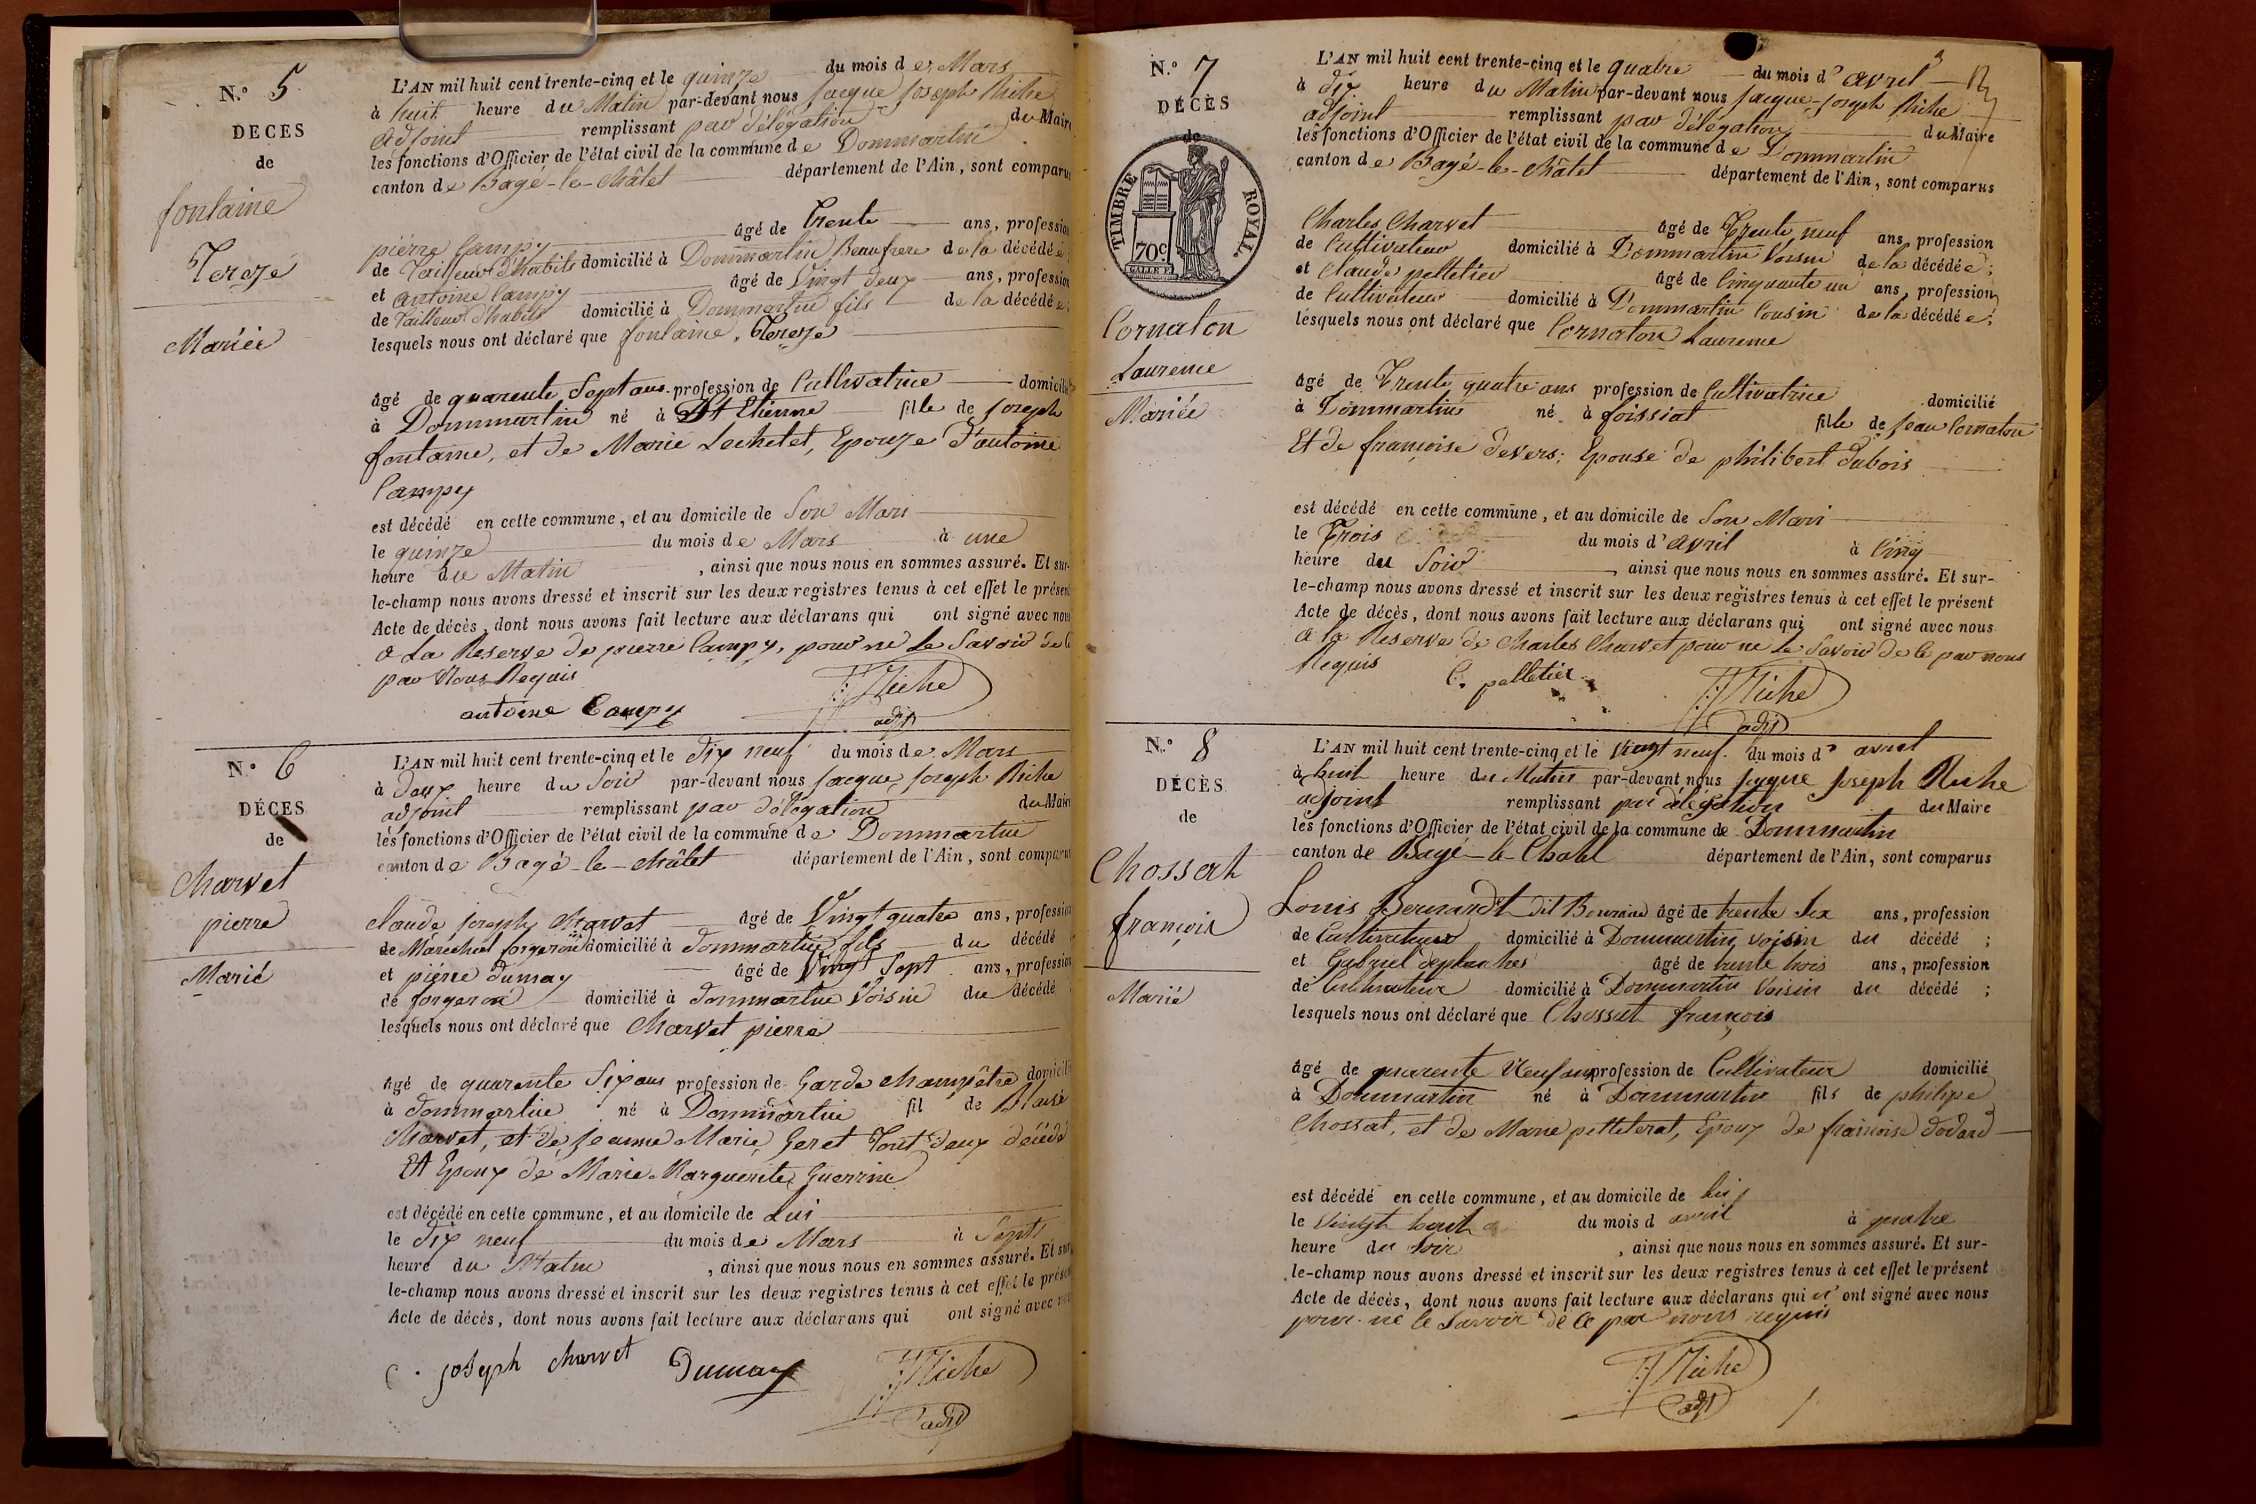 N.º 5
DECES
de
fontaine
Tereze
Mariée
L'AN mil huit cent trente-cinq et le quinze du mois de Mars
à huit heure du Matin par-devant nous Jacque Joseph Riche
adjoint remplissant par délégation du Maire
les fonctions d'Officier de l'état civil de la commune de Dommartin
canton de Bagé-le-châtel département de l'Ain, sont comparus
pierre Campy âgé de Trente ans, profession
de Tailleur d'habits domicilié à Dommartin Beaufrere de la décédée;
et antoine Campy âgé de Vingt deux ans, profession
de Tailleur d'habits domicilié à Dommartin fils de la décédée;
lesquels nous ont déclaré que fontaine, Tereze
âgé de quarente Sept ans profession de Cultivatrice domicilié
à Dommartin né à St Etienne fille de Joseph
fontaine, et de Marie Lechetet, Epouze d'antoine
Campy
est décédé en cette commune, et au domicile de Son Mari
le quinze du mois de Mars à une
heure du Matin, ainsi que nous nous en sommes assuré. Et sur-
le-champ nous avons dressé et inscrit sur les deux registres tenus à cet effet le présent
Acte de décès, dont nous avons fait lecture aux déclarans qui ont signé avec nous
a La Reserve de pierre Campy, pour ne Le Savoir de Ce
par Nous Requis
antoine Campy JJRiche
adjt
N.º 6
DÉCES
de
Charvet
pierre
Marié
L'AN mil huit cent trente-cinq et le dix neuf du mois de Mars
à deux heure du Soir par-devant nous Jacque Joseph Riche
adjoint remplissant par délégation du Maire
les fonctions d'Officier de l'état civil de la commune de Dommartin
canton de Bagé-le-châtel département de l'Ain, sont comparus
Claude joseph Charvet âgé de Vingt quatre ans, profession
de Marechal forgeron domicilié à dommartin fils du décédé
et pierre dumay âgé de Vingt Sept ans, profession
de forgeron domicilié à dommartin Voisin du décédé
lesquels nous ont déclaré que Charvet pierre
âgé de quarente Six ans profession de Garde champêtre domicilié
à dommartin né à Dommartin fil de Blaise
Charvet, et de jeanne Marie Geret Tout deux décédé
Et Epoux de Marie Marguerite Guerrin
est décédé en cette commune, et au domicile de Lui
le dix neuf du mois de Mars à Sept
heure du Matin, ainsi que nous nous en sommes assuré. Et sur
le-champ nous avons dressé et inscrit sur les deux registres tenus à cet effet le présent
Acte de décès, dont nous avons fait lecture aux déclarans qui ont signé avec nous
C. joseph charvet Dumay JJRiche
adjt
N.º 7
DÉCÈS
de
TIMBRE ROYAL.
70c
Cornaton
Laurence
Mariée
3
L'AN mil huit cent trente-cinq et le quatre du mois d'avril
à dix heure du Matin par-devant nous Jacque-Joseph Riche
adjoint remplissant par délégation du Maire
les fonctions d'Officier de l'état civil de la commune de Dommartin
canton de Bagé-le-châtel département de l'Ain, sont comparus
Charles Charvet âgé de Trente neuf ans, profession
de Cultivateur domicilié à Dommartin Voisin de la décédée;
et Claude pelletier âgé de Cinquante un ans, profession
de Cultivateur domicilié à Dommartin Cousin de la décédée;
lesquels nous ont déclaré que Cornaton Laurence
âgé de Trente quatre ans profession de Cultivatrice domicilié
à Dommartin né à foissiat fille de Jean Cornaton
Et de françoise devers; Epouse de philibert dubois
est décédé en cette commune, et au domicile de Son Mari
le Trois du mois d'avril à Cinq
heure du Soir, ainsi que nous nous en sommes assuré. Et sur-
le-champ nous avons dressé et inscrit sur les deux registres tenus à cet effet le présent
Acte de décès, dont nous avons fait lecture aux déclarans qui ont signé avec nous
a la Reserve de Charles Charvet pour ne Le Savoir de Ce par nous
Requis
C. pelletier JJRiche
adjt
N.º 8
DÉCÈS
de
Chossat
françois
Marié
L'AN mil huit cent trente-cinq et le Vingt neuf du mois d'avril
à huit heure du Matin par-devant nous Jacque Joseph Riche
adjoint remplissant par délégation du Maire
les fonctions d'Officier de l'état civil de la commune de Dommartin
canton de Bagé-le-Chatel département de l'Ain, sont comparus
Louis Bernardt dit âgé de trente Six ans, profession
de Cultivateur domicilié à Dommartin voisin du décédé;
et Gabriel desplanches âgé de trente trois ans, profession
de Cultivateur domicilié à Dommartin Voisin du décédé;
lesquels nous ont déclaré que Chossat françois
âgé de quarente Neuf ans profession de Cultivateur domicilié
à Dommartin né à Dommartin fils de philipe
Chossat, et de Marie pelleterat, Epoux de francoise dodard
est décédé en cette commune, et au domicile de lui
le Vingt huit du mois d avril à quatre
heure du Soir, ainsi que nous nous en sommes assuré. Et sur-
le-champ nous avons dressé et inscrit sur les deux registres tenus à cet effet le présent
Acte de décès, dont nous avons fait lecture aux déclarans qui n'ont signé avec nous
pour ne le Savoir de Ce par nous requis
JJRiche
adjt